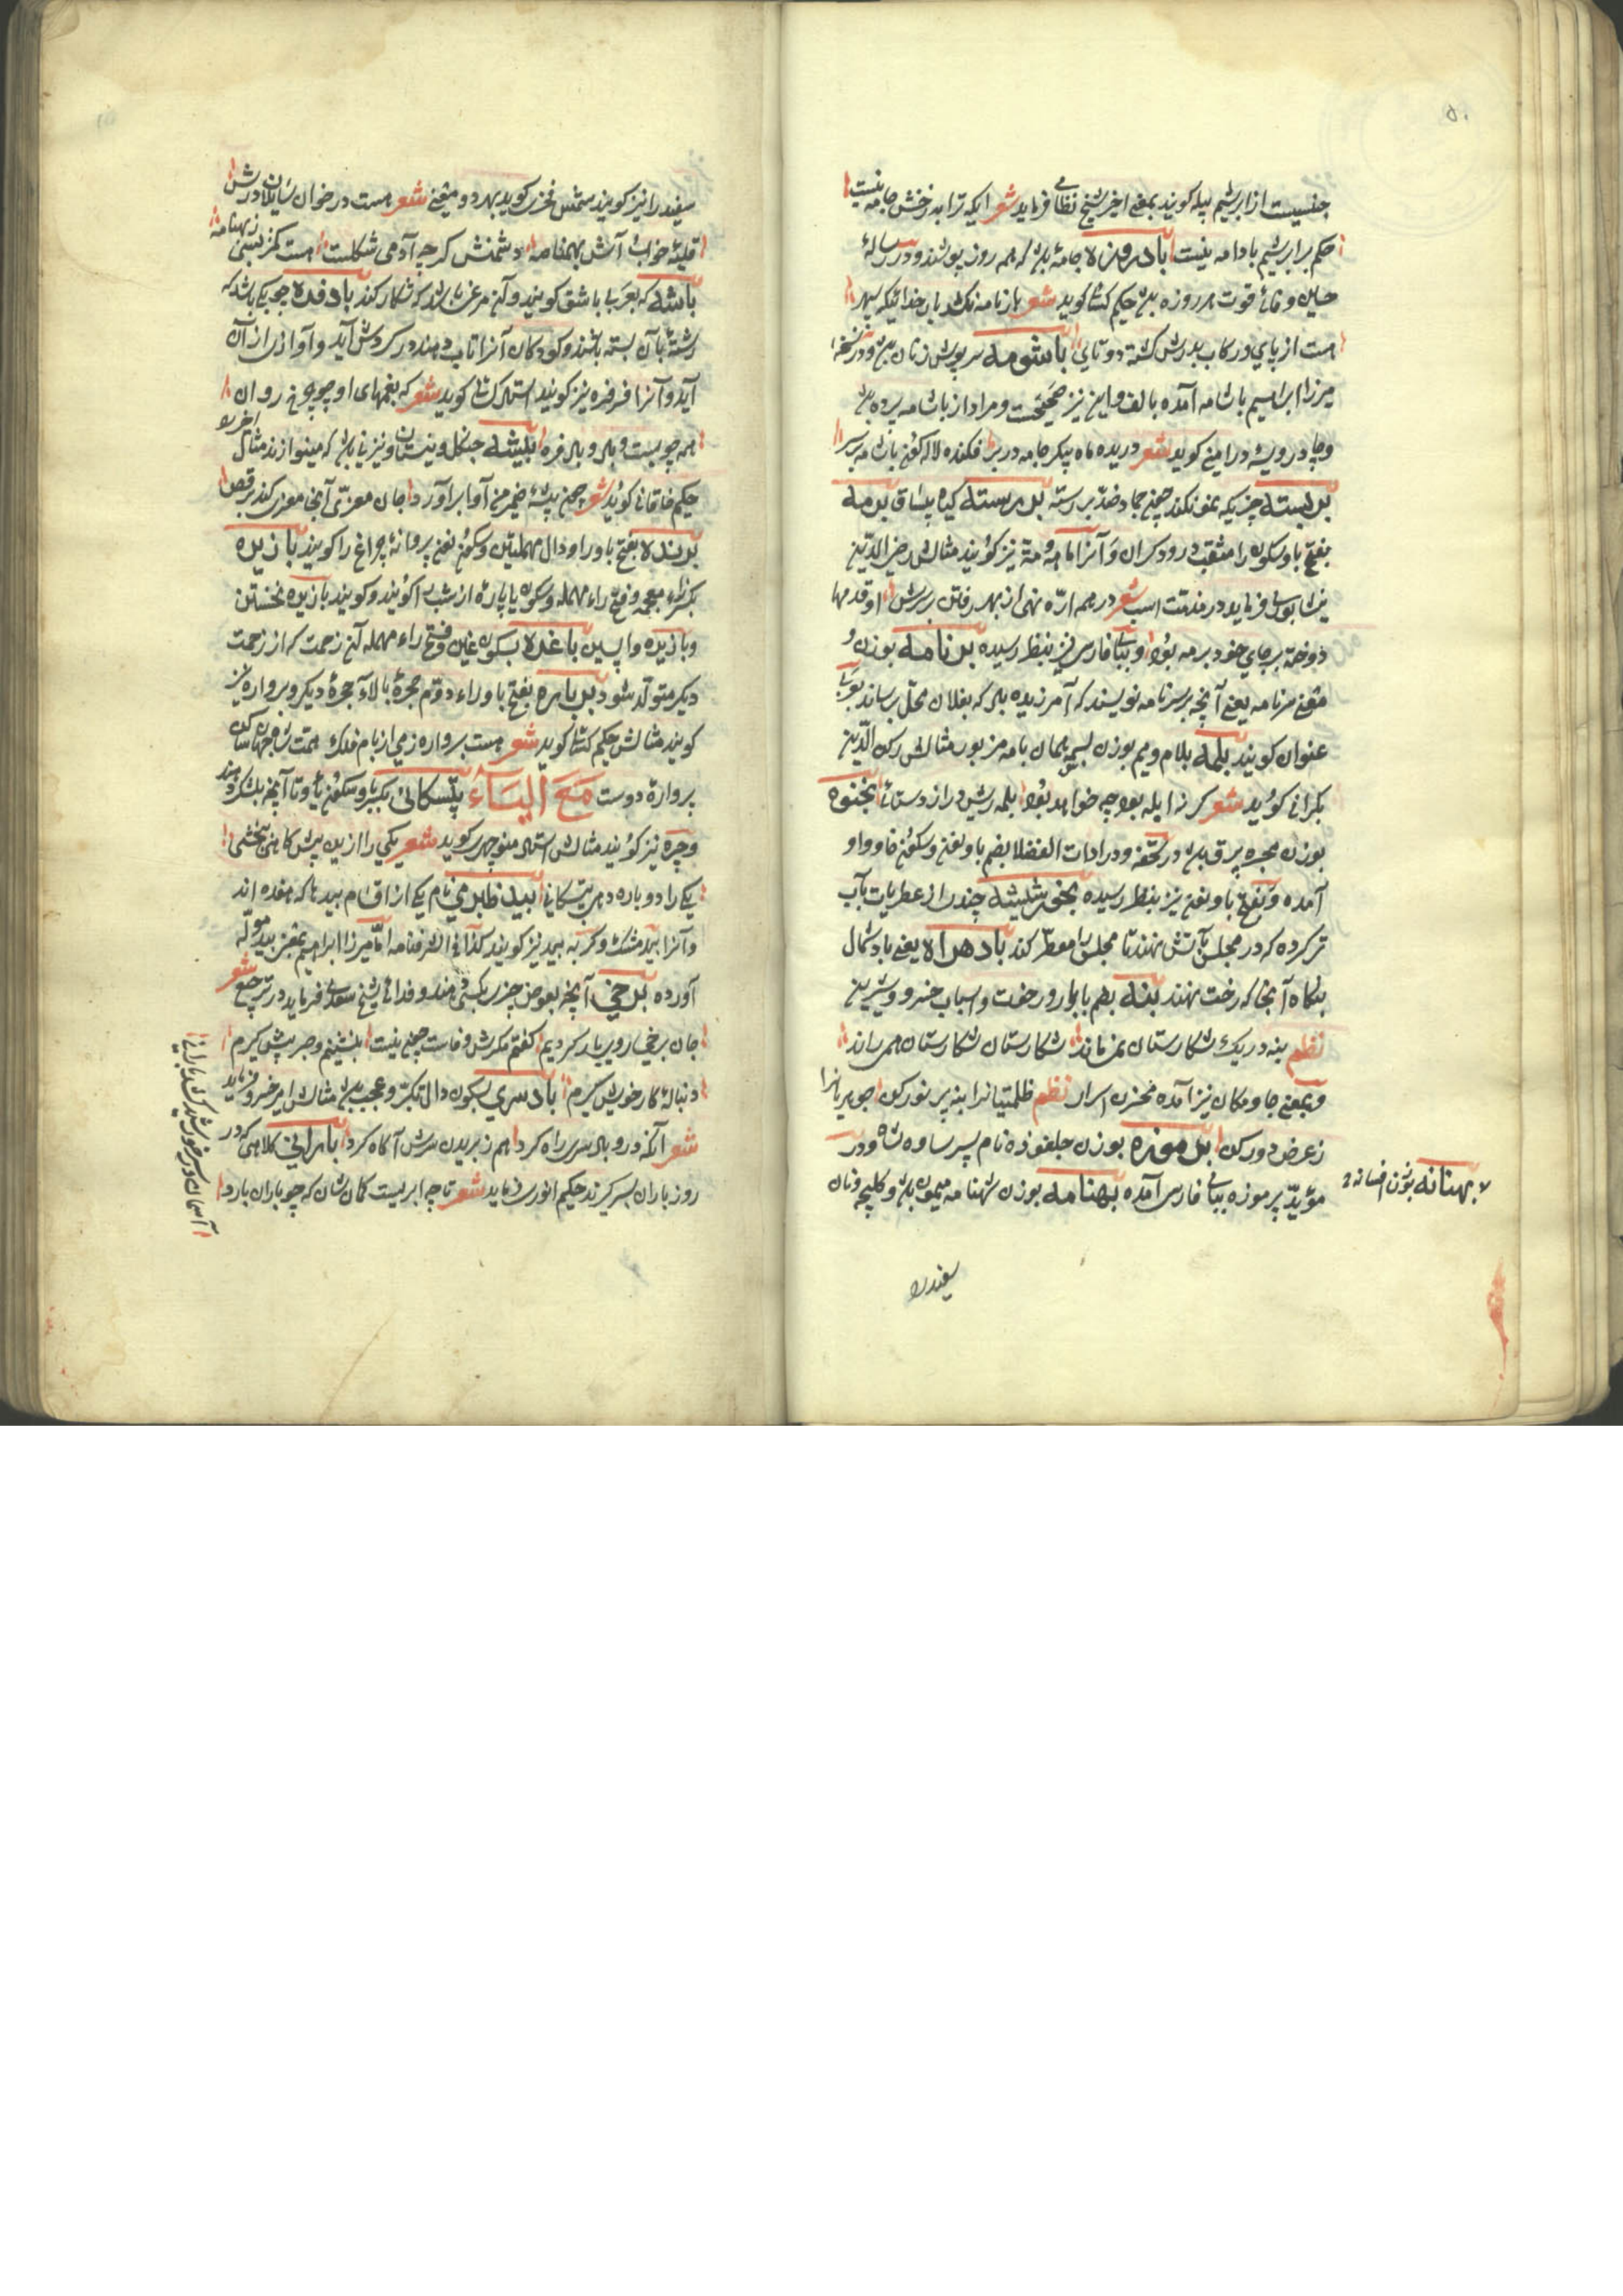 ۵۰
جنسیست از ابریشم پیله کویند بمعنے اخیر شیخ نظامی فرماید شعر ایکه ترا به ز خشن جامه نیست
حکم بر ابریشم بادامه نیست بادروزه جامهٔ باشد که همه روز پوشند و در رسالهٔ
حسین وفائے قوت هر روزه باشد حکیم کسائے کوید شعر بازنامه
هست از پای در رکاب پدرش کشته دو تای باشومه سرپوش زنان باشد و در نسخهٔ
میرزا ابراهیم باشامه آمده بالف و این نیز صحیحست و مراد از باشامه پرده باشد
و چادر درویشه درامینے کوید شعر دریده ماه پیکر جامه در بر فکنده لاله کون باشامه بر سر
بربسته چیزیکه نمو نکند چون جماد ضد بررسته بررسته کیاه بیساق برمه
بفتح با و سکون را مثقب درودکران و آنرا ماهه و مته نیز کویند مثالش رضی الدین
نیشابوری فرماید در مذمت اسب شعر در مهم ارّه نهی از بهر رفتن بر سرش او قدمها
دوخته بر جای خود برمه بود و ببای فارسی نیز بنظر رسیده برنامه بوزن و
معنے سرنامه یعنے آنچه بر سر نامه نویسند که آمرزیده باد که بفلان محل رساند بعربے
عنوان کویند بلمه بلام و میم بوزن لسیمه همان بامه مزبور مثالش رکن الدین
بکرانے کوید شعر کرنه ابله بود چه خواهد بود بلمه ریش دراز دستائے بخنوه
بوزن مجره برق باشد در تحفه و در ادات الفضلا بضم با و نون و سکون خا و واو
آمده و بفتح با و نون نیز بنظر رسیده بخور شلیشه چند از عطریات بآب
تر کرده که در مجلس بآتش نهند تا مجلس را معطر کند بادهراه یعنے باد شمال
بنگاه آنجا که رخت نهند بنه بضم با بار و رخت و اسباب خسرو و شیرین
نظم بنه در یک شکارستان نمیماند شکارستان شکارستان همی راند
و بمعنے جا و مکان نیز آمده مخزن اسرار نظم ظلمتیانرا بنه بی نور کن جوهریانرا
ز عرض دور کن برموزه بوزن جلغوزه نام پسر ساوه شاه و در
مؤید پرموزه ببای فارسی آمده بهنامه بوزن شهنامه میمون باشد و کلیچه و نان
بهنانه بوزن افسانه
سفیدرا
سفیدرا نیز کویند شمس فخری کوید بهر دو معنے شعر هست در خوان سایلان درش
قلیهٔ خواب آش بهنامه دشمنش کرچه آدمی شکلست هست کمتر بسی ز بهنامه
باشه که بعربے باشق کویند و آن مرغے باشد که شکار کند بادفره چوبکے باشد که
رشتهٔ بآن بسته باشند و کودکان آنرا تاب دهند در کردش آید و آوازی از آن
آید و آنرا فرفره نیز کویند استاد کسائے کوید شعر که بغمهای او چو چرخ روان
همه چوبست و باد و باد فره بیشه جنکل و نیستان و نیز نایے باشد که مینوازند مثال
حکیم خاقانے کوید شعر چون بیشه ضمیر من آوا برآورد جان معزی آنجا معزی کند برقص
برنده بفتح با و را و دال مهملتین و سکون نون پروانهٔ چراغ را کویند بازیره
بکسر زاء معجمه و فتح راء مهمله و سکون یا پارهٔ از شب را کویند و کویند بازیره نخستین
و بازیره واپسین باغره بسکون غین و فتح راء مهمله آن زحمت که از زحمت
دیکر متولد شود برباره بفتح با و راء دوم حجرهٔ بالای حجرهٔ دیکر و برواره نیز
کویند مثالش حکیم کسائے کوید شعر هست برواره زمی از بام فلک همت شاه جهان ساکن
بروارهٔ دوست مَعَ الیَاء بتسکانی بکسر با و سکون تا و تا آنچه بشکر دهند
و چره نیز کویند مثالش استاد منوچهری کوید شعر یکی را از بن بیش کاهی نبخشی
یکے را دو باره دهی بتسکانے بید طبری نام یکے از اقسام بید باشد که هفده اند
و آنرا بید مشک و کربه بید نیز کویند کذا فے الشرفنامه امّا میرزا ابراهیم بمعنے بید موله
آورده برخی آنچه بعوض چیزی بکسی دهند و فدائے شیخ سعدی فرماید در ترجیع شعر
جان برخی روی یار کردیم کفتم مکرش وفاست چون نیست بنشینم و صبر پیش کیرم
دنبالهٔ کار خویش کیرم بادسری بسکون دال تکبّر و عجب باشد مثالش امیر خسرو فرماید
شعر آنکه درو باد سری راه کرد هم ز بریدن سرش آکاه کرد بارانی کلاهی که در
روز باران بسر کیرند حکیم انوری فرماید شعر تا چه ابریست کمان شان که چو باران بارد
آسمان در سر خورشید کشد بارانے